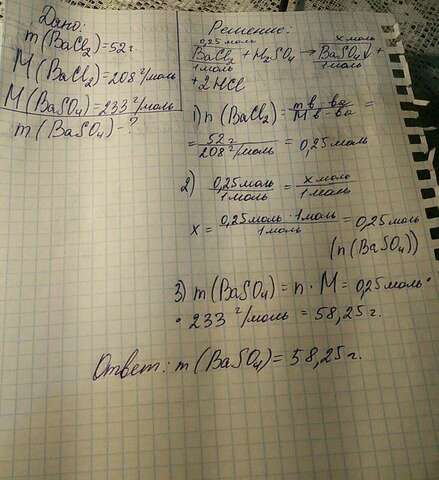 Дано:
m(BaCl₂)=52г.
M(BaCl₂)=208 г/моль
M(BaSO₄)=233 г/моль
m(BaSO₄)-?
Решение:
0,25 моль x моль
BaCl₂ + H₂SO₄ → BaSO₄↓ +
1 моль 1 моль
+ 2HCl
1) n(BaCl₂) = m в-ва / M в-ва =
= 52 г / 208 г/моль = 0,25 моль
2) 0,25 моль / 1 моль = x моль / 1 моль
x = 0,25 моль · 1 моль / 1 моль = 0,25 моль
(n(BaSO₄))
3) m(BaSO₄) = n · M = 0,25 моль ·
· 233 г/моль = 58,25 г.
Ответ: m(BaSO₄) = 58,25 г.